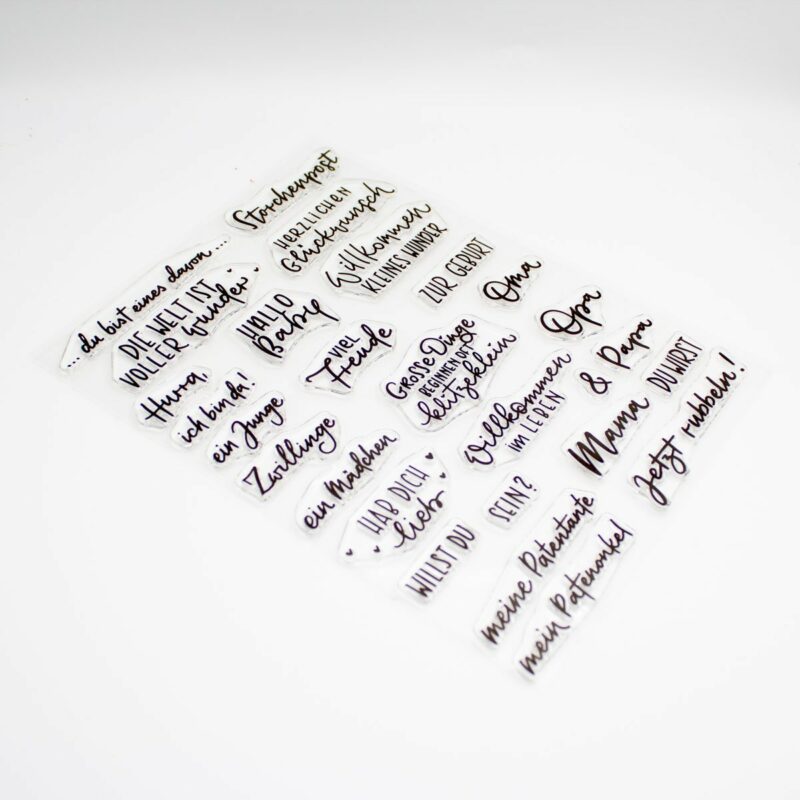 Storchenpost
HERZLICHEN
Glückwunsch
Willkommen
KLEINES WUNDER
ZUR GEBURT
Oma
Opa
& Papa
DU WIRST
Jetzt rubbeln!
... du bist eines davon ...
DIE WELT IST
VOLLER wunder
HALLO
Baby
VIEL
Freude
GROSSE Dinge
BEGINNEN OFT
klitzeklein
Willkommen
IM LEBEN
Mama
Hurra
ich bin da!
ein Junge
Zwillinge
ein Mädchen
HAB DICH
lieb
WILLST DU
SEIN?
meine Patentante
mein Patenonkel